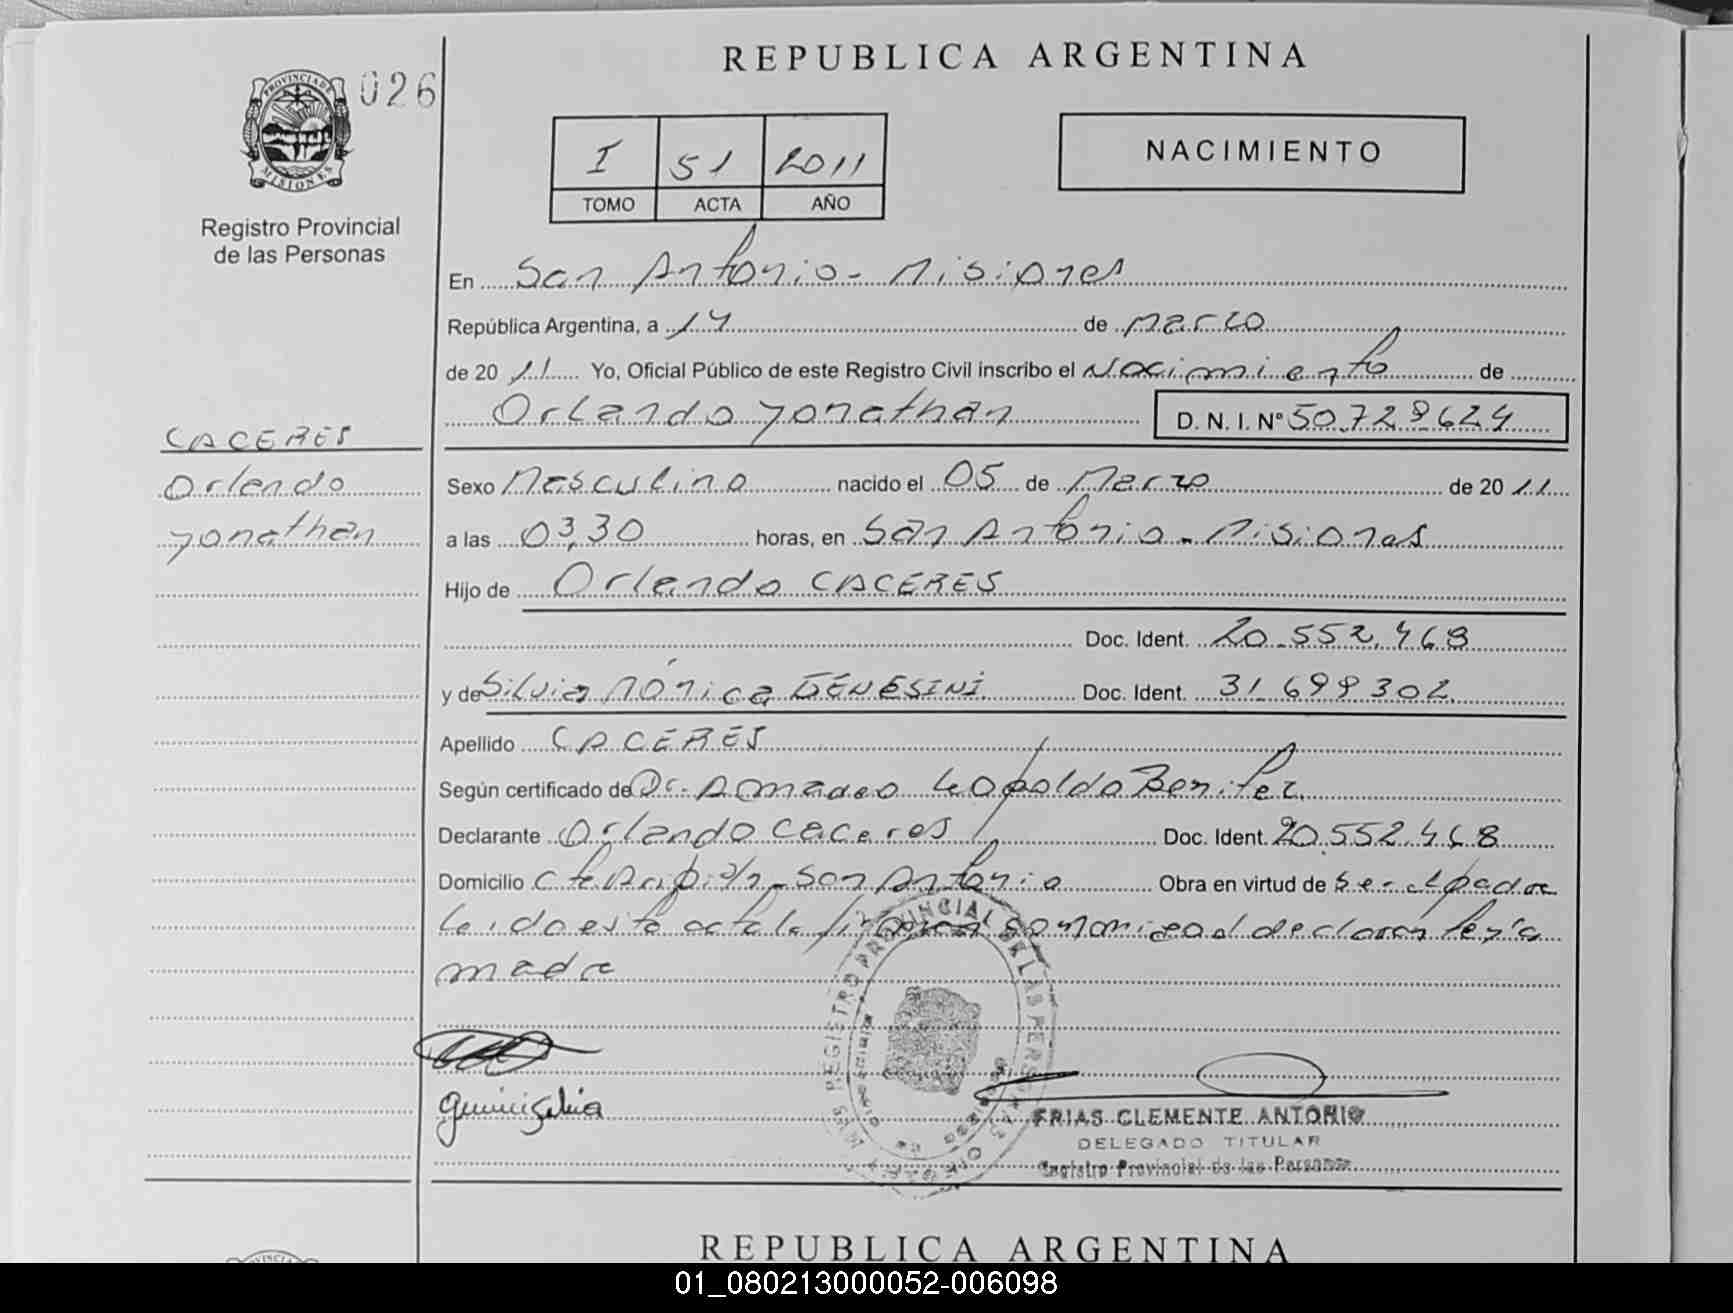 REPUBLICA ARGENTINA
026
PROVINCIA DE
MISIONES
Registro Provincial
de las Personas
I 51 2011
TOMO ACTA AÑO
NACIMIENTO
En San Antonio - Misiones
República Argentina, a 14 de Marzo
de 2011 Yo, Oficial Público de este Registro Civil inscribo el Nacimiento de
Orlando Yonathan D. N. I. Nº 50.729624
CACERES
Orlando
Yonathan
Sexo Masculino nacido el 05 de Marzo de 2011
a las 03,30 horas, en San Antonio - Misiones
Hijo de Orlando CACERES
Doc. Ident. 20.552.468
y de Silvia Mónica GENESINI Doc. Ident. 31.699302
Apellido CACERES
Según certificado de Dr. Amadeo Leopoldo Benitez
Declarante Orlando Caceres Doc. Ident. 20.552.468
Domicilio San Antonio Obra en virtud de ser el padre
Leido esta acta la conmigo el declarante y la
madre
REGISTRO PROVINCIAL DE LAS PERSONAS
FRIAS CLEMENTE ANTONIO
DELEGADO TITULAR
Registro Provincial de las Personas
REPUBLICA ARGENTINA
01_080213000052-006098